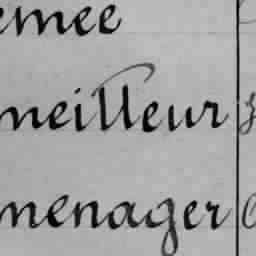 emee
meilleur
menager